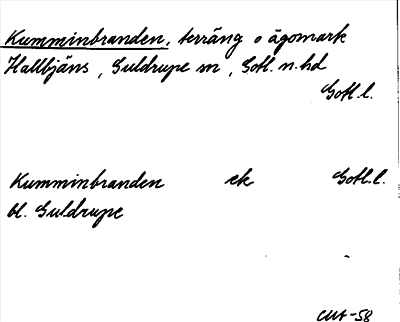 Kumminbranden, terräng o ägomark
Hallbjäns, Guldrupe sn, Gotl. n. hd
Gotl.l.
Kumminbranden ek Gotl.l.
bl. Guldrupe
-58